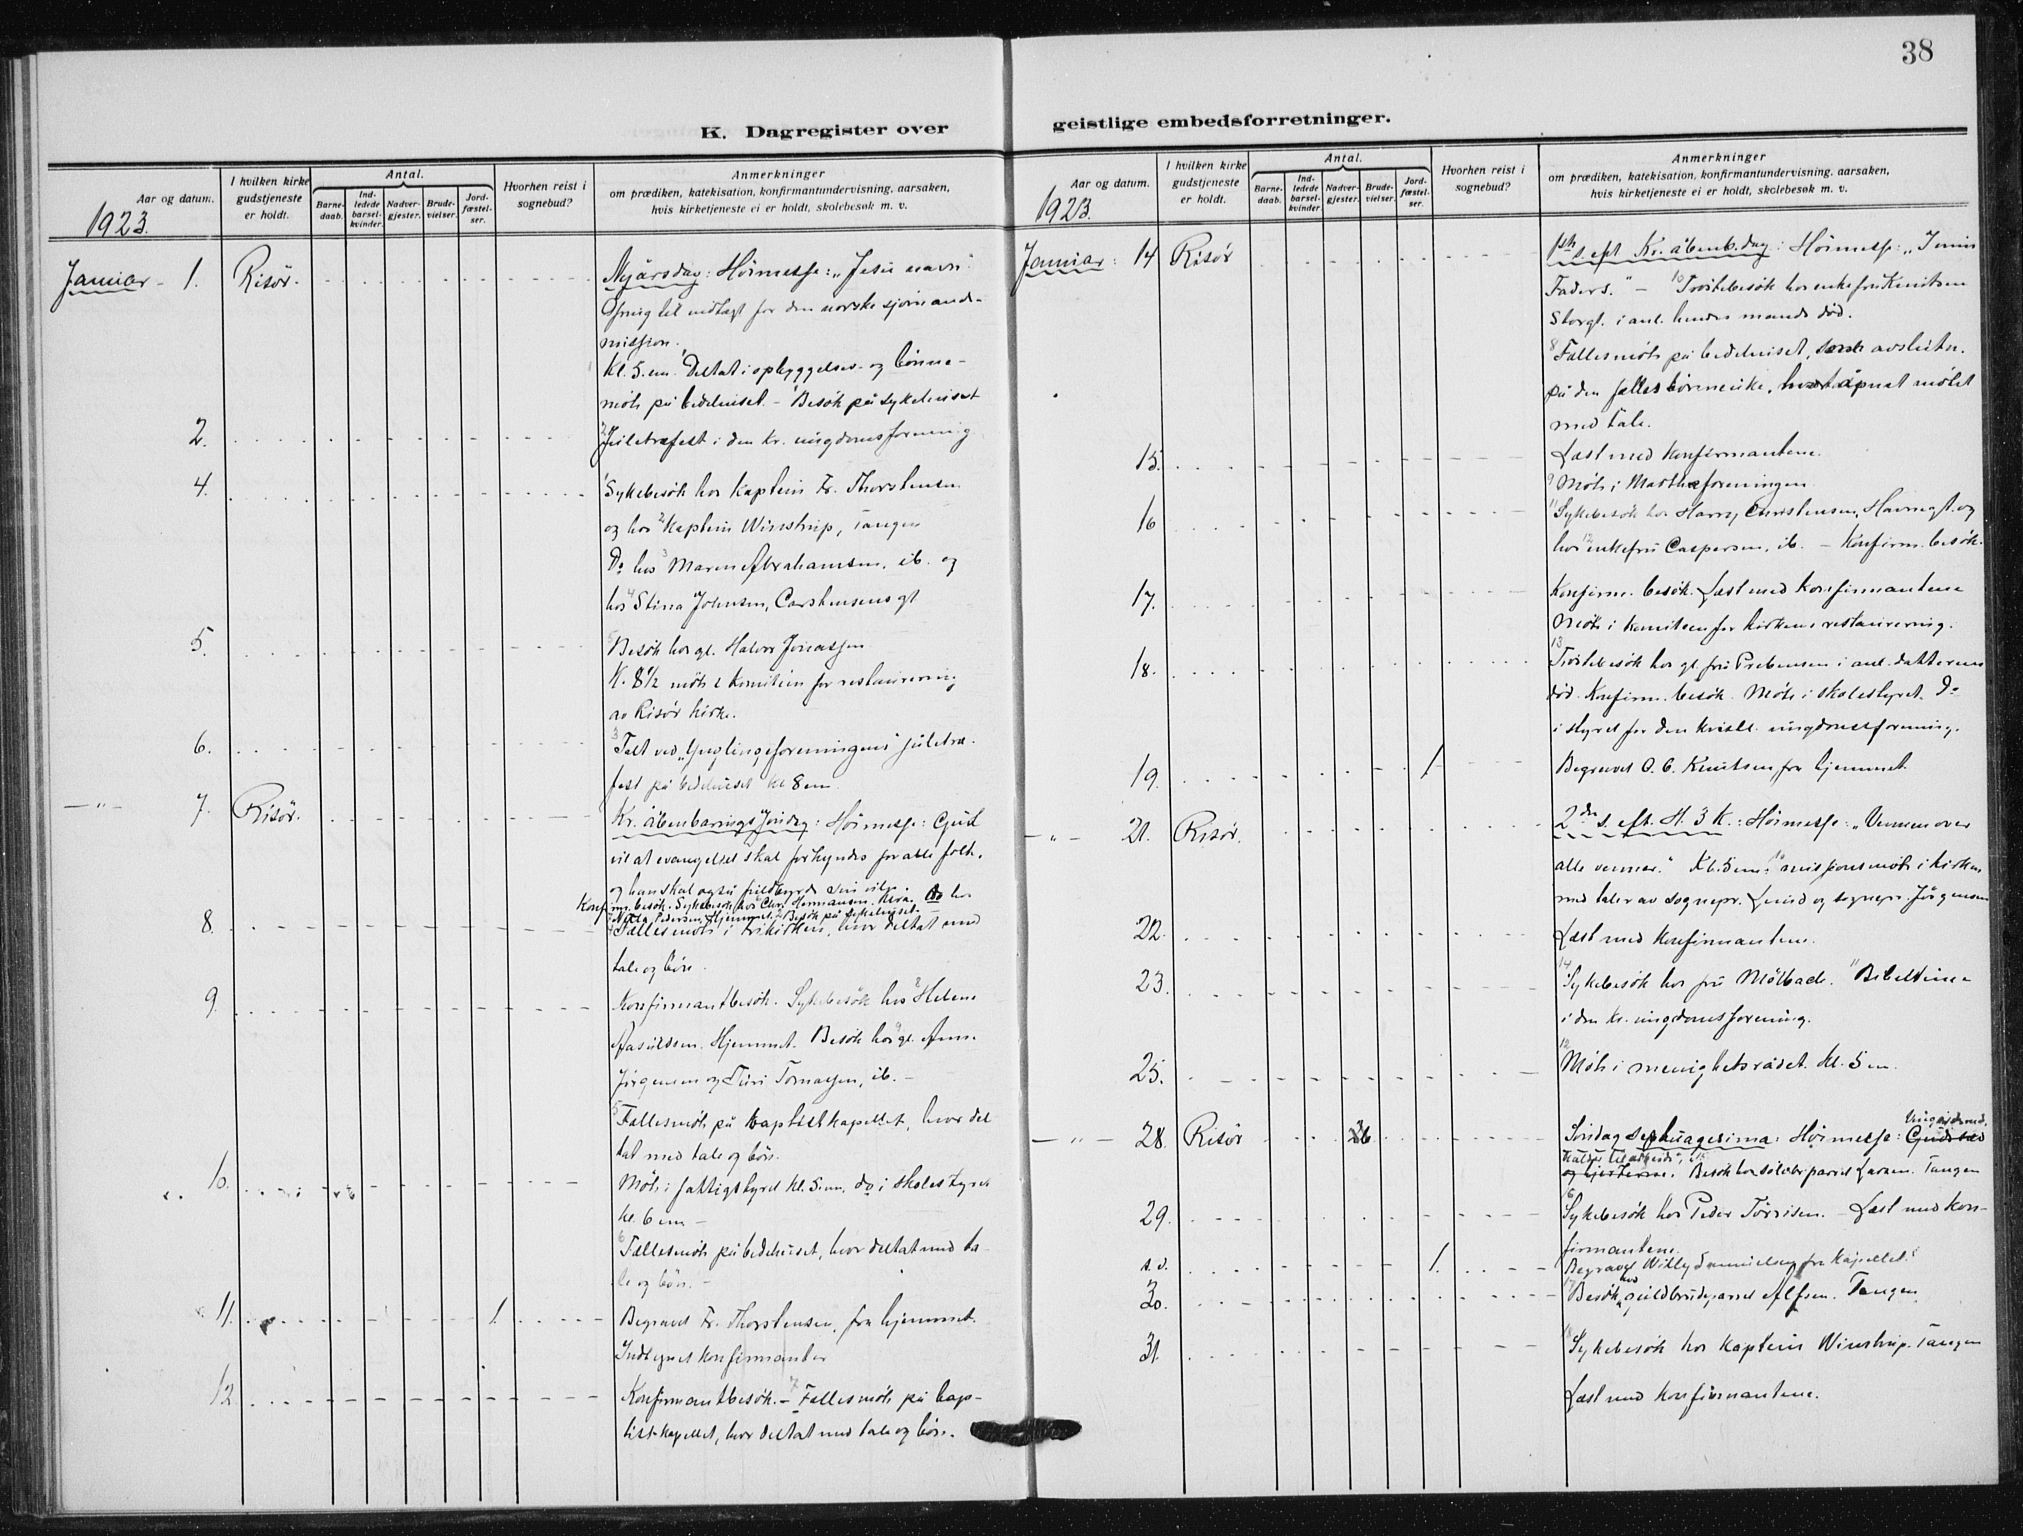 38
K. Dagregister over
geistlige embedsforretninger.
Aar og datum.
1923.
I hvilken kirke
gudstjeneste
er holdt.
Antal.
Barne-
daab.
Ind-
ledede
barsel-
kvinder.
Nadver-
gjester.
Brude-
vielser.
Jord-
fæstel-
ser.
Hvorhen reist i
sognebud?
Anmerkninger
om prædiken, katekisation, konfirmantundervisning, aarsaken,
hvis kirketjeneste ei er holdt, skolebesøk m. v.
Januar - 1. Risør. Nyårsdag: Høimesse: „Jesu navn"
Ofring til indtægt for den norske sjømands-
mission.
Kl. 5. em. Deltat i opbyggelses- og bønne-
møte på bedehuset. - Besøk på sykehuset
2. Juletræfest i den kr. ungdomsforening
4. Sykebesøk hos kaptein Fr. Thorstensen
og hos kaptein Winstrup, Tangen
Do hos Maren Abrahamsen, ib. og
hos Stina Johnsen, Carstensens gt
5. Besøk hos gl. Halvor Jonassen
Kl. 8 1/2 møte i komiteen for restaurering
av Risør kirke.
6. Talt ved „Ynglingeforeningens" juletræ-
fest på bedehuset kl 8 em.
-"- 7. Risør. Kr. åbenbaringssøndag: Høimesse: Gud
vil at evangeliet skal forkyndes for alle folk,
og han skal også fuldbyrde sin vilje.
Konfirm. besøk. Sykebesøk hos Chr. Hermansen. Do hos
Pedersen, Hjemmet. Besøk på sykehuset.
8. Fællesmøte i frikirken, hvor deltat med
tale og bøn.
9. Konfirmantbesøk. Sykebesøk hos Helene
Aasuldsen. Hjemmet. Besøk hos gl. Anne
Jørgensen og Siri Tomassen, ib. -
Fællesmøte på baptistkapellet, hvor del-
tat med tale og bøn.
10. Møte i fattigstyret kl. 5 em. do i skolestyret
kl. 6 em -
Fællesmøte på bedehuset, hvor deltat med ta-
le og bøn. -
11. 1. Begravet Fr. Thorstensen, fra hjemmet.
Indtegnet konfirmanter
12. Konfirmantbesøk. - Fællesmøte på bap-
tistkapellet, hvor deltat med tale og bøn.
Aar og datum.
1923.
I hvilken kirke
gudstjeneste
er holdt.
Antal.
Barne-
daab.
Ind-
ledede
barsel-
kvinder.
Nadver-
gjester.
Brude-
vielser.
Jord-
fæstel-
ser.
Hvorhen reist i
sognebud?
Anmerkninger
om prædiken, katekisation, konfirmantundervisning, aarsaken,
hvis kirketjeneste ei er holdt, skolebesøk m. v.
Januar: 14 Risør 1ste s. eft Kr. åbenb.dag: Høimesse: „I min
Faders." - Trøstebesøk hos enkefru Knutsen
Storgt. i anl. hendes mands død.
Fællesmøte på bedehuset, som avslutn.
på den fælles bønneuke, hvor åpnet møtet
med tale.
15. Læst med konfirmantene.
Møte i Marthaforeningen
16 Sykebesøk hos Harry Christensen, Havnegt. og
hos enkefru Caspersen, ib. - Konfirm. besøk.
17. Konfirm. besøk. Læst med konfirmantene
Møte i komiteen for kirkens restaurering.
18. Trøstebesøk hos gl. fru Prebensen i anl. datterens
død. Konfirm. besøk. Møte i skolestyret. Do
i styret for den kristl. ungdomsforening.
19. 1 Begravet O. C. Knutsen fra hjemmet.
-"- 21. Risør. 2den s. eft. H. 3 K.: Høimesse: „Vennen over
alle venner." Kl. 5 em: missionsmøte i kirken
med taler av sognepr. Lund og sognepr. Jörgensen
22. Læst med konfirmantene.
23. Sykebesøk hos fru Mølbach. Bibeltime
i den kr. ungdomsforening.
25. Møte i menighetsrådet kl. 5 em.
-"- 28. Risør Søndag Septuagesima: Høimesse:
Besøk hos sølvbrudeparret Larsen. Tangen
29. Sykebesøk hos Peder Tørrisen. - Læst med kon-
firmantene.
s. d. 1. Begravet Willy Samuelsen fra kapellet.
30. Besøk hos guldbrudeparret Alfsen. Tangen
31. Sykebesøk hos kaptein Winstrup. Tangen
Læst med konfirmantene.